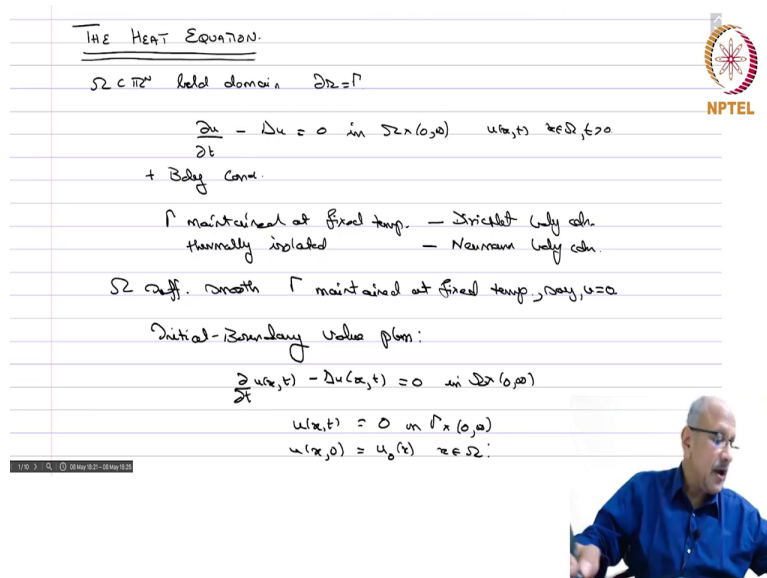 THE HEAT EQUATION.
Ω ⊂ ℝᴺ bdd domain, ∂Ω = Γ
∂u/∂t - Δu = 0 in Ω×(0,∞) u(x,t) x∈Ω, t>0.
+ Bdy Cond.
Γ maintained at fixed temp. — Dirichlet bdy cdn.
thermally isolated — Neumann bdy cdn.
Ω suff. smooth Γ maintained at fixed temp., say, u=0
Initial-Boundary value pbm:
∂/∂t u(x,t) - Δu(x,t) = 0 in Ω×(0,∞)
u(x,t) = 0 on Γ×(0,∞)
u(x,0) = u₀(x) x∈Ω.
NPTEL
1/10 08 May 18:21 - 08 May 18:26